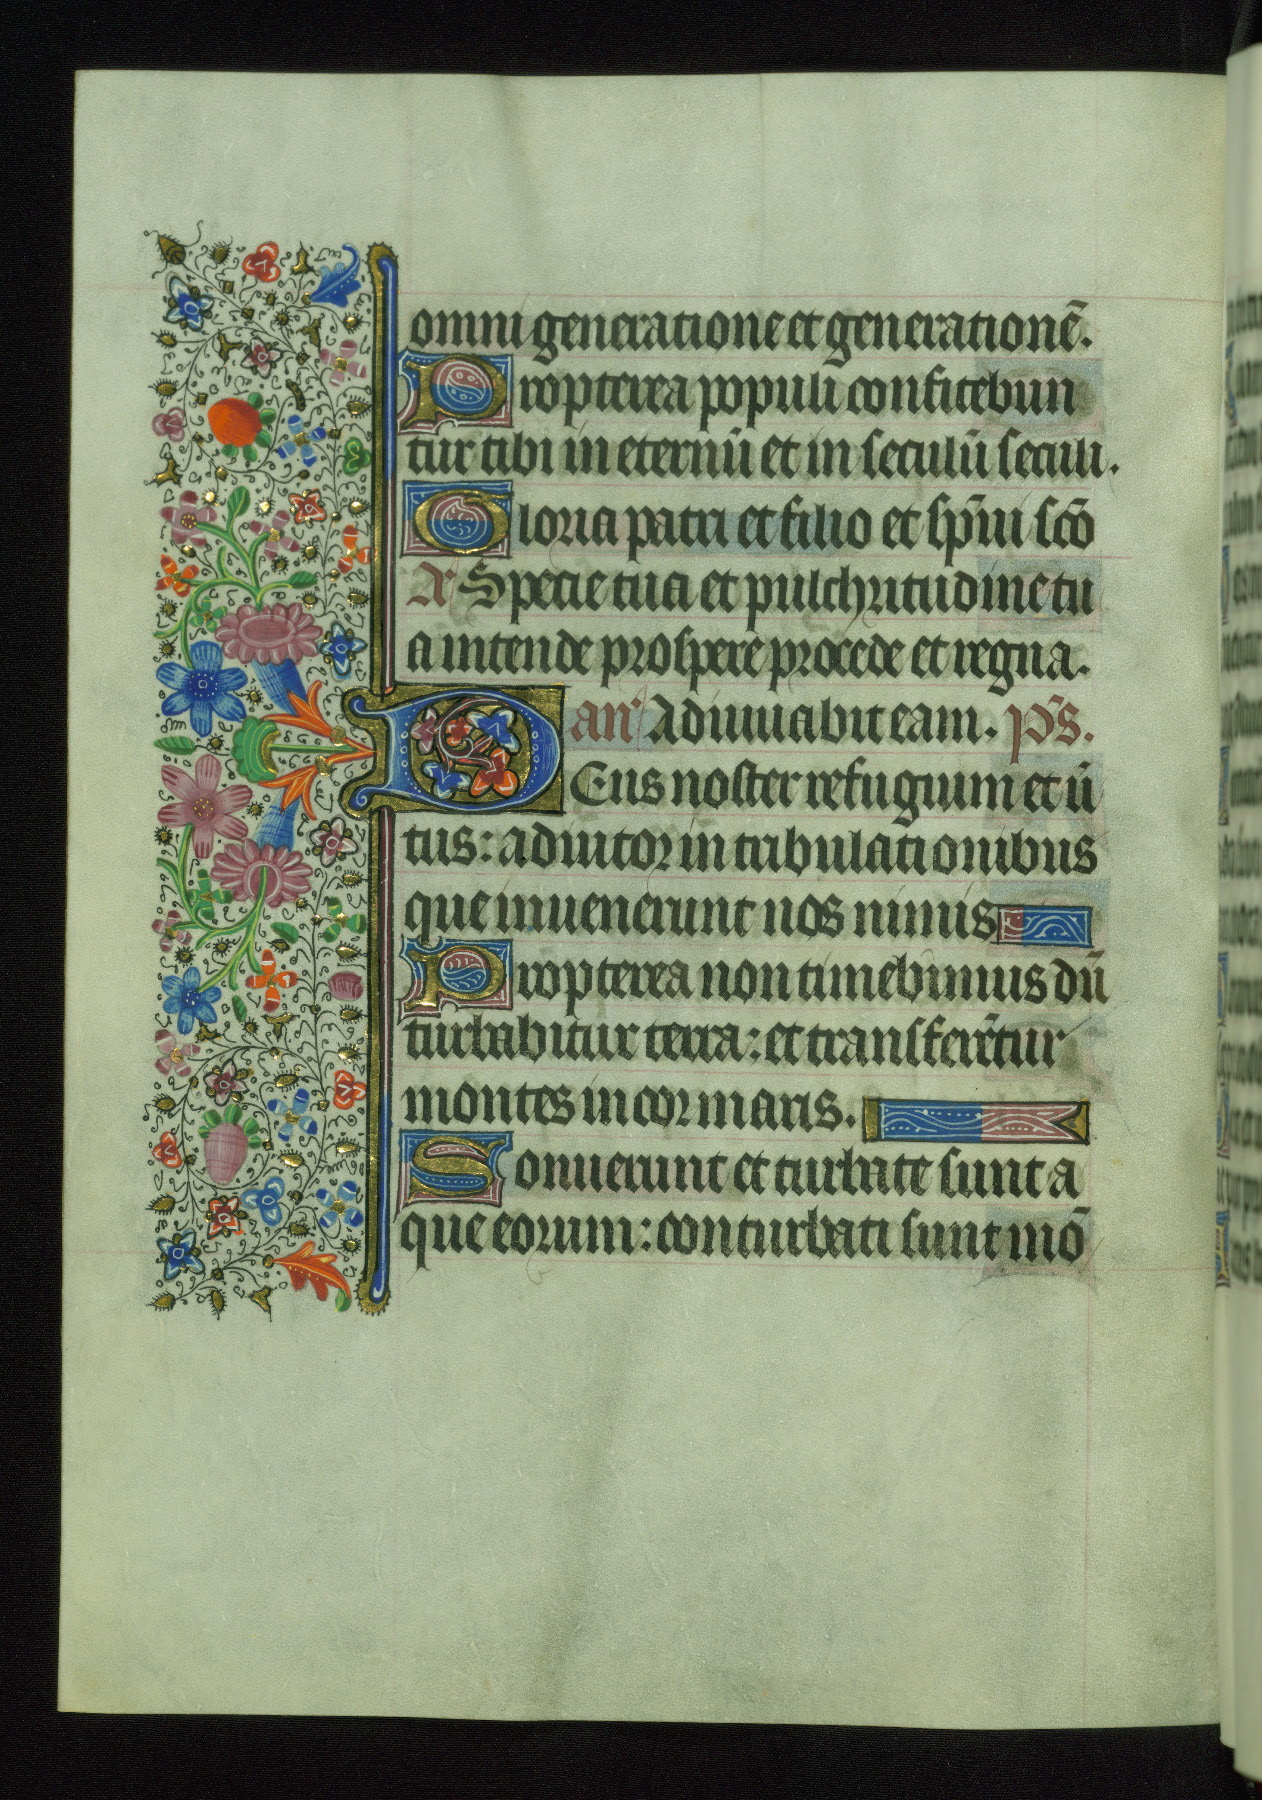 omni generatione et generationē.
Propterea populi confitebun
tur tibi in eternū et in seculū seculi.
Gloria patri et filio et sp̄ui scō
A' Specie tua et pulchritudine tu
a intende prospere procede et regna.
an' Adiuuabit eam. p̄s.
DEus noster refugium et ū
tus: adiutor in tribulationibus
que inuenerunt nos nimis
Propterea non timebimus dū
turbabitur terra: et transferētur
montes in cor maris.
Sonuerunt et turbate sunt a
que eorum: conturbati sunt mō